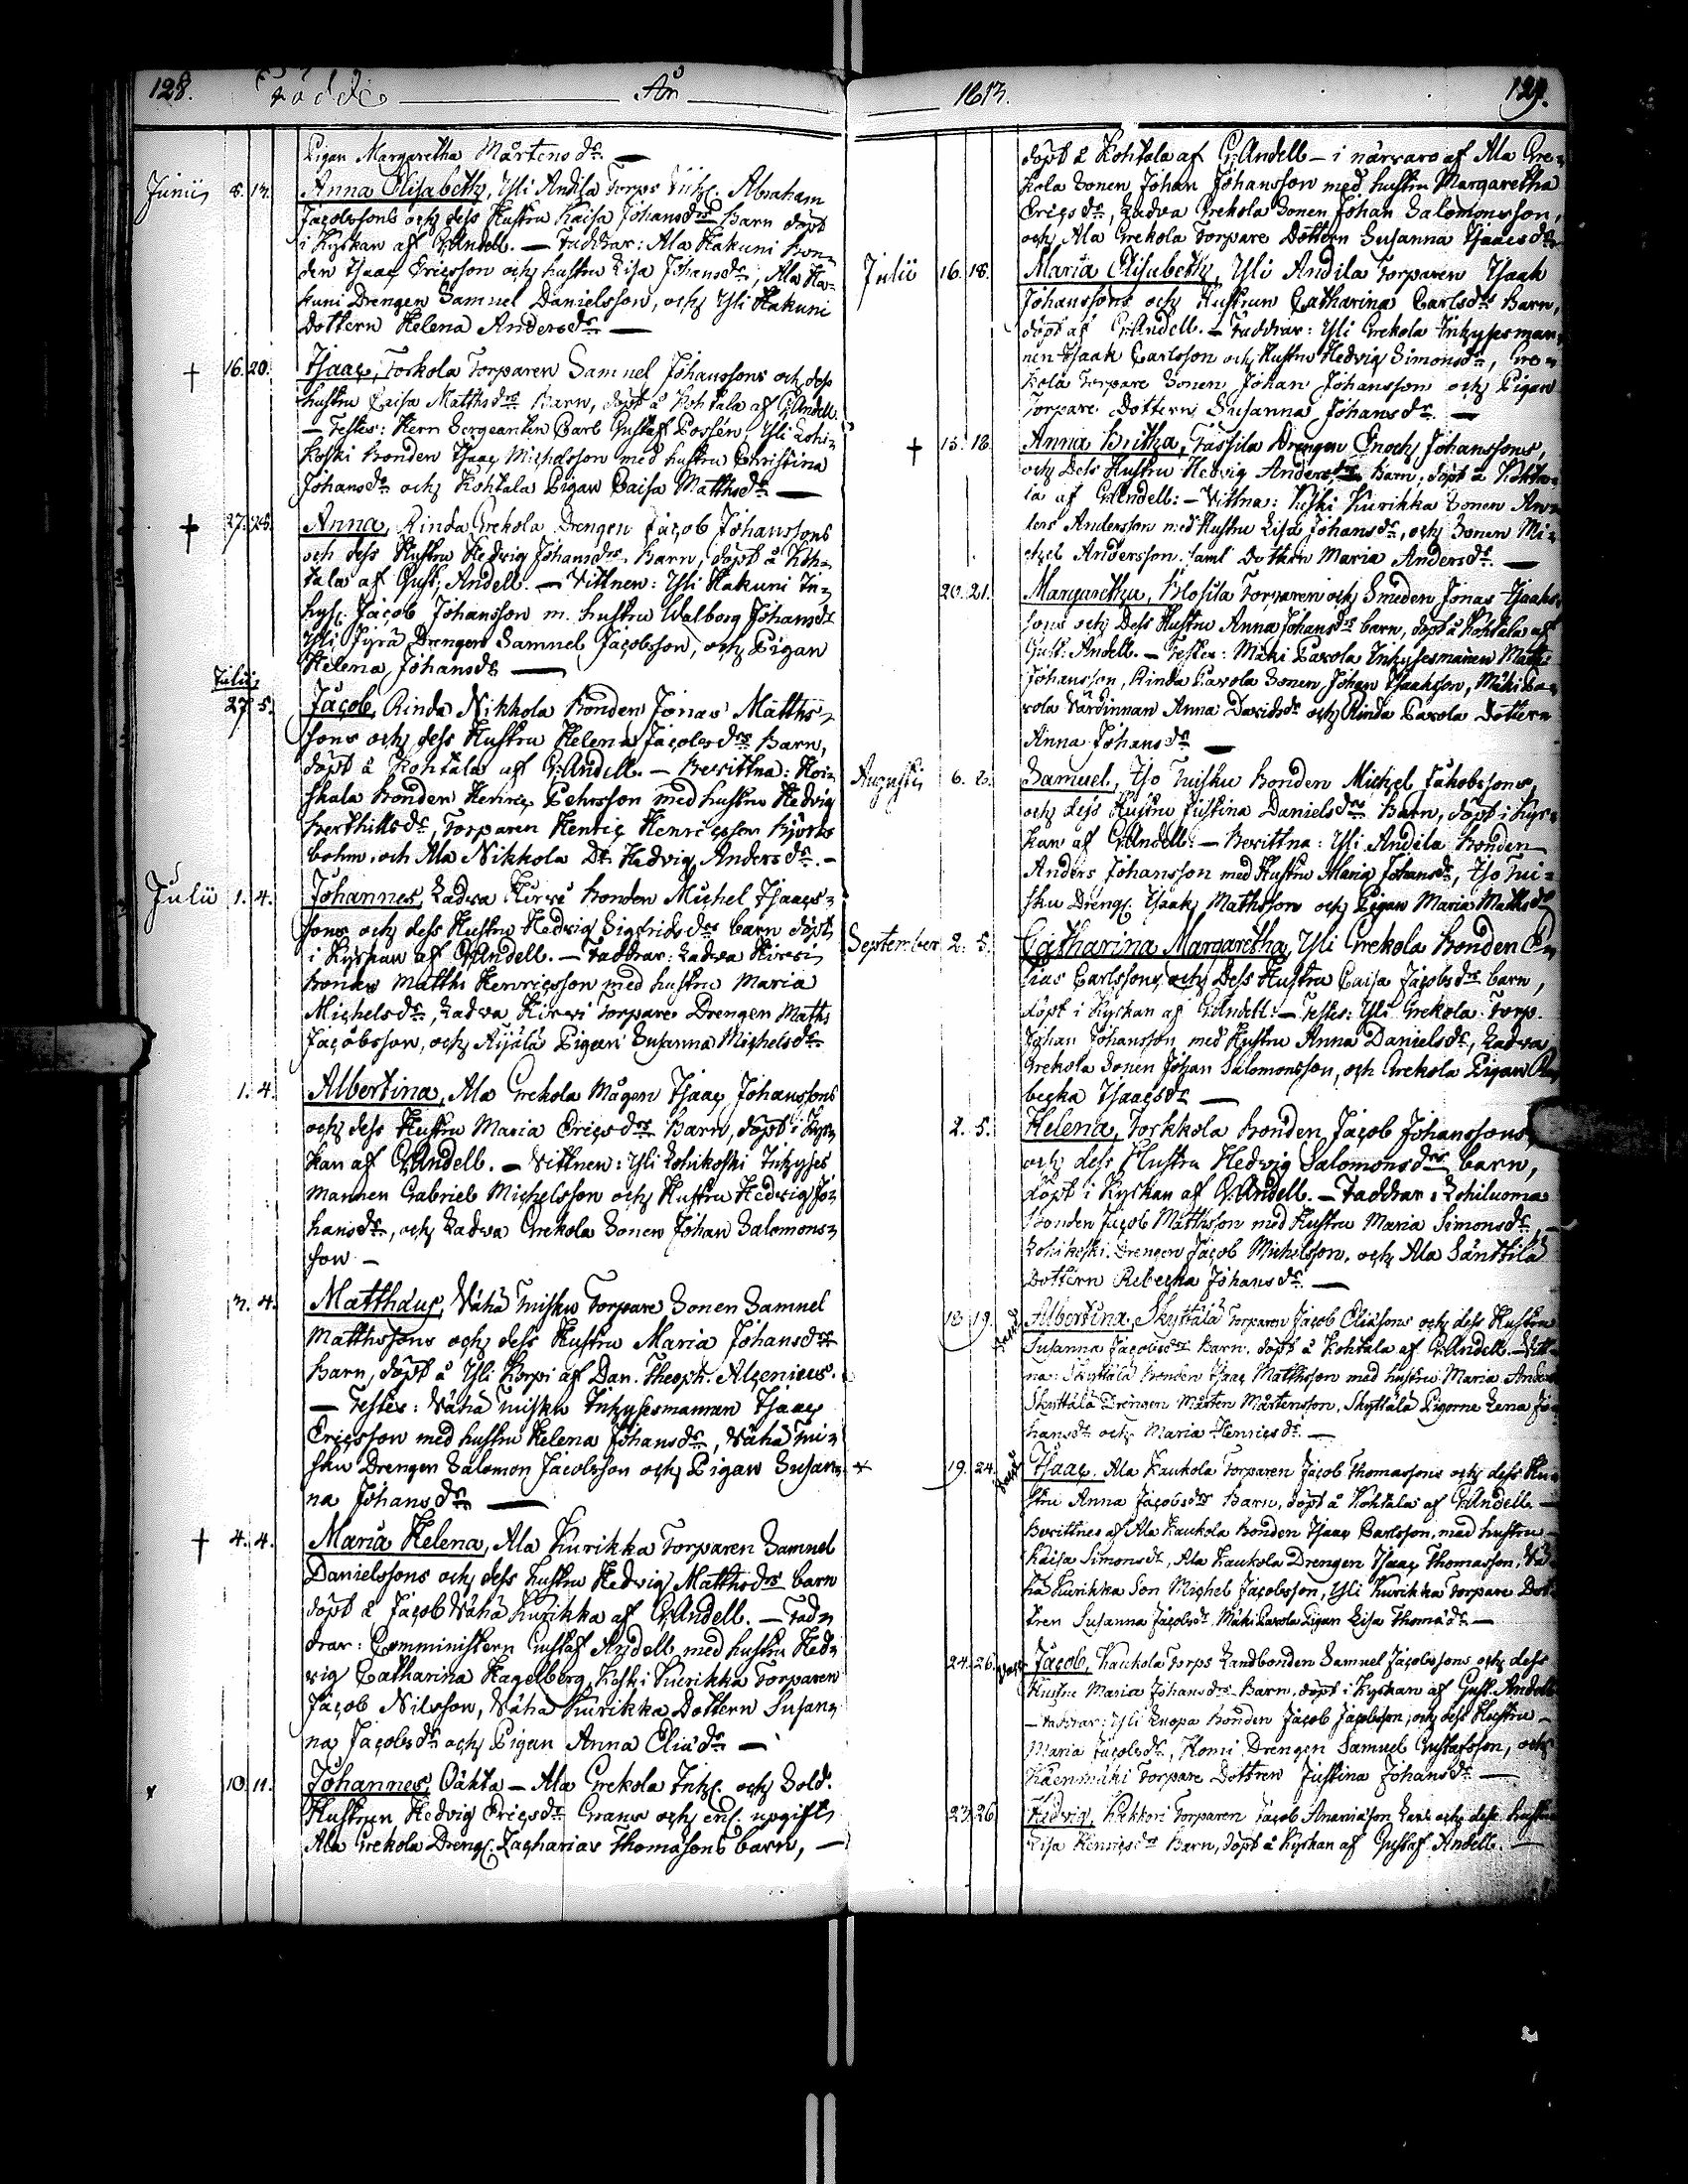 128. Födde År
Pigan Margaretha Mårtensdr. —
Junii 8. 13. Anna Elisabeth, Yli Andila Torps Inhs. Abraham
Jacobssons och dess Hustru Kaisa Johansdrs Barn döpt
i Kyrkan af G. Andell. — Faddrar: Ala Hakuni Bon=
den Isaac Ericsson och hustru Lisa Johansdr, Ala Ha=
kuni Drengen Samuel Danielsson, och Yli Hakuni
Dottern Helena Andersdr. —
† 16. 20. Isaac, Torkola Torparen Samuel Johanssons och dess
hustru Caisa Matthsdrs Barn, döpt å Kohtala af G. Andell.
— Testes: Herr Sergeanten Carl Gustaf Possén, Yli Lohi=
koski Bonden Isaac Michelsson med hustru Christina
Johansdr och Kohtala Pigan Caisa Matthsdr —
† 27. 28. Anna, Rinda Grekola Drengen Jacob Johanssons
och dess Hustru Hedvig Johansdrs Barn, döpt å Koh=
tala af Gust. Andell. — Vittnen: Yli Hakuni In=
hys. Jacob Johansson m. hustru Walborg Johansdr
Yli Jyrä Drengen Samuel Jacobsson, och Pigan
Helena Johansdr —
Julii
27. 5. Jacob, Rinda Nikkola Bonden Jonas Matths=
sons och dess Hustru Helena Jacobsdrs Barn,
döpt å Kohtala af G. Andell. — Bevittna: Koi=
skala Bonden Henric Pehrsson med hustru Hedvig
Berthillsdr, Torparen Henric Henricsson Björk=
bohm, och Ala Nikkola Dr. Hedvig Andersdr. —
Julii 1. 4. Johannes, Ladva Hirvi Bonden Michel Isaacs=
sons och dess Hustru Hedvig Sigfridsdrs barn döpt
i Kyrkan af G. Andell. — Faddrar: Ladva Hirvi
Bonden Matths Henricsson med hustru Maria
Michelsdr, Ladva Hirvi Torpare Drengen Matts
Jacobsson, och Äijälä Pigan Susanna Michelsdr
1. 4. Albertina, Ala Grekola Mågen Isaac Johanssons
och dess Hustru Maria Ericsdrs Barn, döpt i Kyr=
kan af G. Andell. — Vittnen: Yli Lohikoski Inhyses
mannen Gabriel Michelsson och Hustru Hedvig Jo=
hansdr, och Ladva Grekola Sonen Johan Salomons=
son —
3. 4. Matthäus, Vähä Tuisku Torpare Sonen Samuel
Matthssons och dess Hustru Maria Johansdrs
Barn, döpt å Yli Korpi af Dan. Theoph. Alcenius.
— Testes: Vähä Tuisku Inhysesmannen Isaac
Ericsson med hustru Helena Johansdr, Vähä Tui=
sku Drengen Salomon Jacobsson och Pigan Susan=
na Johansdr —
† 4. 4. Maria Helena, Ala Kurikka Torparen Samuel
Danielssons och dess hustru Hedvig Matthsdrs barn
döpt å Jacob Vähä Kurikka af G. Andell. — Fad=
drar: Comministern Gustaf Andell med hustru Hed=
vig Catharina Hagelberg, Koski Kurikka Torparen
Jacob Nilsson, Vähä Kurikka Dottern Susan=
na Jacobsdr och Pigan Anna Eliædr —
10. 11. Johannes, Oäkta — Ala Grekola Inhs. och Sold.
Hustrun Hedvig Ericsdr Grans och enl. upgift
Ala Grekola Drengs. Zacharias Thomæsons barn, —
1813. 129.
döpt å Kohtala af G. Andell — i närvaro af Ala Gre=
kola Sonen Johan Johansson med hustru Margaretha
Ericsdr, Ladva Grekola Sonen Johan Salomonsson,
och Ala Grekola Torpare Dottern Susanna Isaacsdr
Julii 16. 18. Maria Elisabeth, Yli Andila Torparen Isaak
Johanssons och Hustrun Catharina Carlsdrs Barn,
döpt af G. Andell. — Faddrar: Yli Grekola Inhysesman=
nen Isaak Carlsson och Hustru Hedvig Simonsdr, Gre=
kola Torpare Sonen Johan Johansson och Pigan
Torpare Dottern Susanna Johansdr. —
† 15. 18. Anna Britha, Tassila Drengen Enoch Johanssons,
och Dess Hustru Hedvig Andersdrs Barn, döpt å Kohta=
la af G. Andell: — Vittna: Koski Kurikka Sonen An=
ders Andersson med Hustru Lisa Johansdr, och Sonen Mi=
chel Andersson, samt Dottern Maria Andersdr. —
20. 21. Margaretha, Klosita Torparen och Smeden Jonas Isaaks=
sons och Dess Hustru Anna Johansdrs barn, döpt å Kohtala af
Gust: Andell. — Testes: Mäki Pavola Inhysesmannen Matts
Johansson, Rinda Pavola Sonen Johan Isaaksson, Mäki Pa=
vola Värdinnan Anna Davidsdr och Rinda Pavola Dottern
Anna Johansdr —
Augusti 6. 8. Samuel, Iso Tuisku Bonden Michel Jakobssons,
och dess Hustru Justina Danielsdrs Barn, döpt i Kyr=
kan af G. Andell: — Bevittna: Yli Andila Bonden
Anders Johansson med Hustru Maria Johansdr, Iso Tui=
sku Drengs. Isaak Mathsson och Pigan Maria Mattsdr
September 2. 5. Catharina Margaretha, Yli Grekola Bonden E=
lias Carlssons och Dess Hustru Caisa Jacobsdrs barn,
döpt i Kyrkan af G. Andell: — Testes: Yli Grekola Torp.
Johan Johansson med Hustru Anna Danielsdr, Ladva
Grekola Sonen Johan Salomonsson, och Grekola Pigan Re=
becka Isaacsdr —
2. 5. Helena, Torkkola Bonden Jacob Johanssons,
och dess Hustru Hedvig Salomonsdrs barn,
döpt i Kyrkan af G. Andell. — Faddrar: Lohiluoma
Bonden Jacob Matthsson med Hustru Maria Simonsdr,
Lohikoski Drengen Jacob Michelsson, och Ala Säntilä
Dottern Rebecka Johansdr. —
18. 19. Albertina, Skyttälä Torparen Jacob Eliæsons och dess Hustru
Susanna Jacobsdrs Barn, döpt å Kohtala af G. Andell. — Vitt=
na: Skyttälä Bonden Isaac Mathsson med hustru Maria Anders
Skyttälä Drengen Mårten Mårtensson, Skyttälä Pigorne Lena Jo=
hansdr och Maria Henricsdr. —
19. 24. Isaac, Ala Kaukola Torparen Jacob Thomassons och dess Hu=
stru Anna Jacobsdrs Barn, döpt å Kohtala af G. Andell. —
Bevittnes af Ala Kaukola Bonden Isaac Carlsson, med hustru
Kaisa Simonsdr, Ala Kaukola Drengen Isaac Thomasson, Vä=
hä Kurikka Son Michel Jacobsson, Yli Kurikka Torpare Dot=
tren Susanna Jacobsdr. Mäki Pavola Pigan Lisa Thomædr —
24. 26. Jacob, Kaukola Torps Landbonden Samuel Jacobssons och dess
Hustru Maria Johansdrs Barn, döpt i Kyrkan af Gust. Andell
— Faddrar: Yli Luopa Bonden Jacob Jacobsson, och dess Hustru
Maria Jacobsdr, Homi Drengen Samuel Gustafsson, och
Käenmäki Torpare Dottren Justina Johansdr —
23. 26. Hedvig, Torparen Jacob och dess hustru
Lisa Henricsdrs Barn, döpt å Kyrkan af Gustaf Andell. —